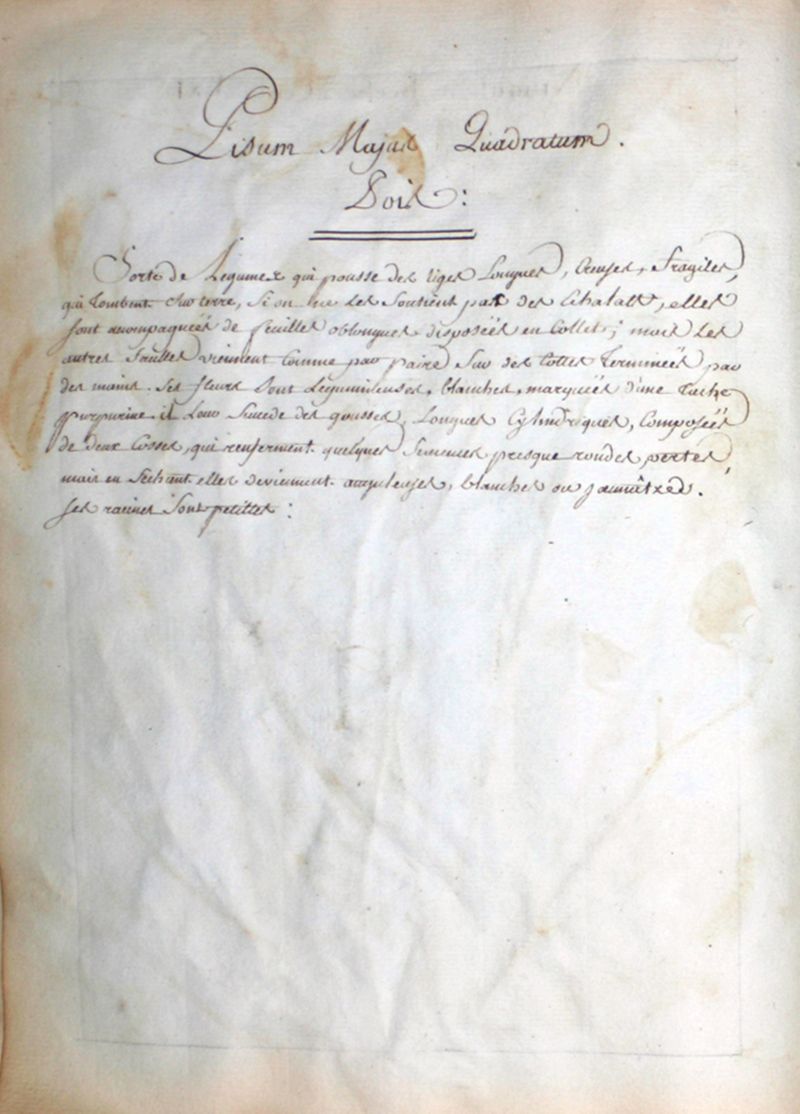 Pisum Majus Quadratum.
Pois:
Sorte de Legumes qui pousse des tiges Longues, Creuses, Fragiles,
qui tombent sur terre, Si on ne Les Soutient par des Echalats, elles
sont accompagnées de feuilles oblongues disposées en Collet; mais Les
autres feuilles viennent Comme par paire Sur des Cottes terminées par
des mains. Ses fleurs Sont Legumineuses, blanches, marquées d'une tache
purpurine. il Leur Succede des gousses, Longues Cylindriques, Composées
de deux Cosses, qui renferment quelques Semences presque rondes, vertes,
mais en Sechant elles deviennent anguleuses, blanches ou jaunâtres.
Ses racines Sont petittes: